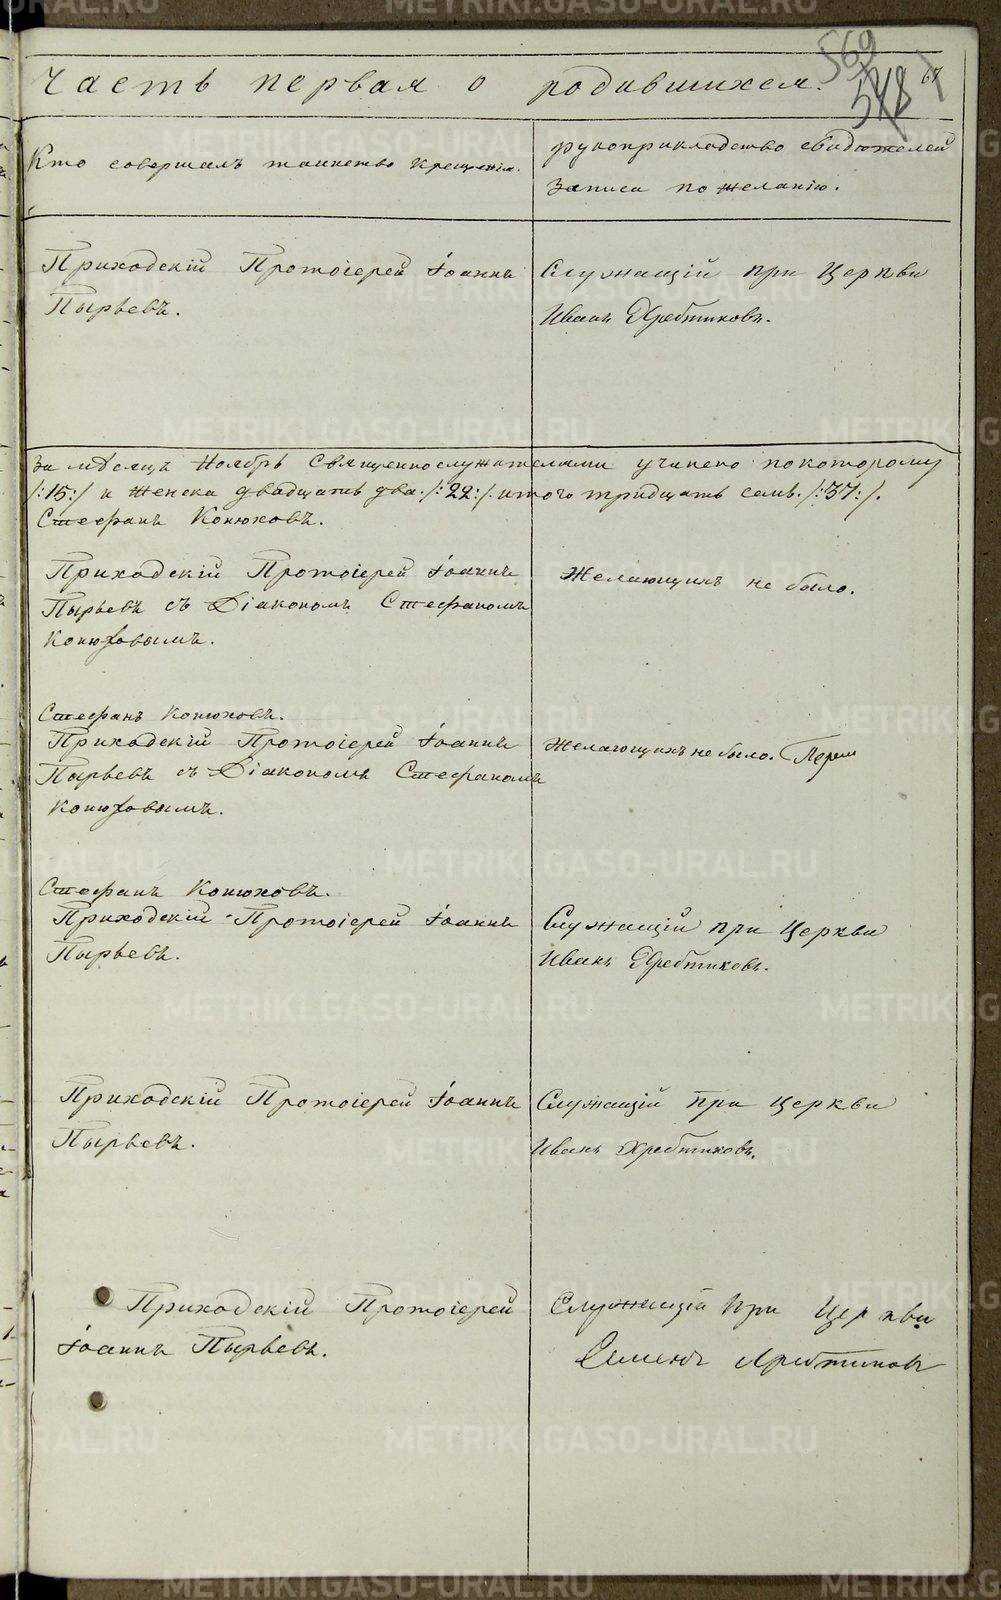 569
518
67
Часть первая о родившихся.
Кто совершалъ таинство крещенія.
рукоприкладство свидѣтелей
записи по желанію.
Приходскій Протоіерей Іоаннъ
Пырьевъ.
Служащій при Церкви
Иванъ Хребтиковъ.
За мѣсяцъ Ноябрь Священнослужителями учинено покоторому
/:15:/ и женска двадцать два /:22:/ итого тридцать семь. /:37:/.
Стефанъ Конюховъ.
Приходскій Протоіерей Іоаннъ
Пырьевъ съ Діакономъ Стефаномъ
Конюховымъ.
Желающихъ не было.
Стефанъ Конюховъ.
Приходскій Протоіерей Іоаннъ
Пырьевъ съ Діакономъ Стефаномъ
Конюховымъ.
Желающихъ не было.
Стефанъ Конюховъ.
Приходскій Протоіерей Іоаннъ
Пырьевъ.
Служащій при Церкви
Иванъ Хребтиковъ.
Приходскій Протоіерей Іоаннъ
Пырьевъ.
Служащій при Церкви
Иванъ Хребтиковъ.
Приходскій Протоіерей
Іоаннъ Пырьевъ.
Служащій при Церкви
Семенъ Хребтиковъ